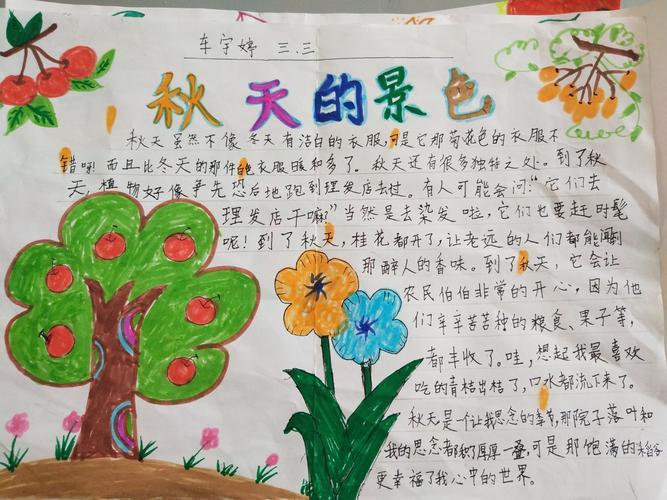 车宇婷 三.三
秋天的景色
秋天虽然不像冬天有洁白的衣服,可是它那菊花色的衣服不
错呀!而且比冬天的那件白色衣服暖和多了。秋天还有很多独特之处。到了秋
天,植物好像争先恐后地跑到理发店去过。有人可能会问:“它们去
理发店干嘛?”当然是去染发啦,它们也要赶时髦
呢!到了秋天,桂花都开了,让老远的人们都能闻到
那醉人的香味。到了秋天,它会让
农民伯伯非常的开心,因为他
们辛辛苦苦种的粮食、果子等,
都丰收了。哇,想起我最喜欢
吃的青桔出桔了,口水都流下来了。
秋天是一个让我思念的季节,那院子落叶和
我的思念都积了厚厚一叠,可是那饱满的稻谷
更幸福了我心中的世界。